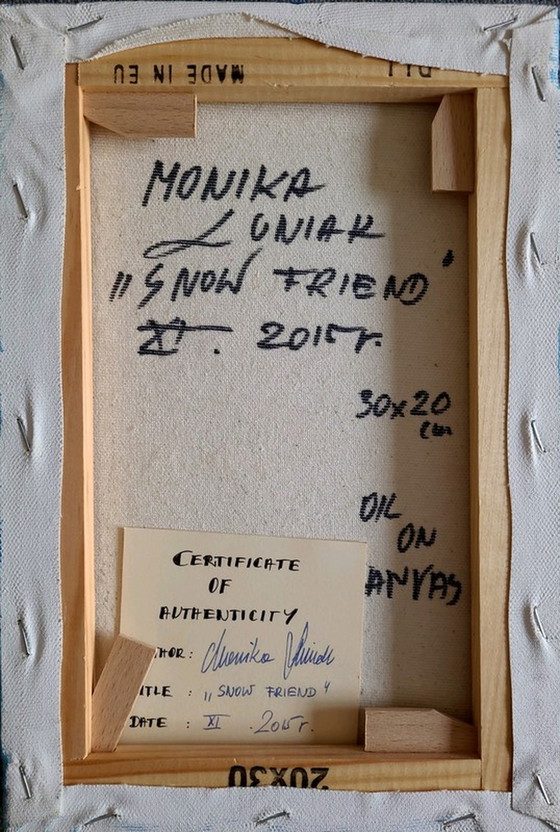 MADE IN EU
MONIKA
LUNIAK
„SNOW FRIEND"
XI. 2015r.
30x20
cm
OIL
ON
ANVAS
CERTIFICATE
OF
AUTHENTICITY
THOR: Monika Luniak
ITLE : „SNOW FRIEND"
DATE : XI .2015r.
20X30